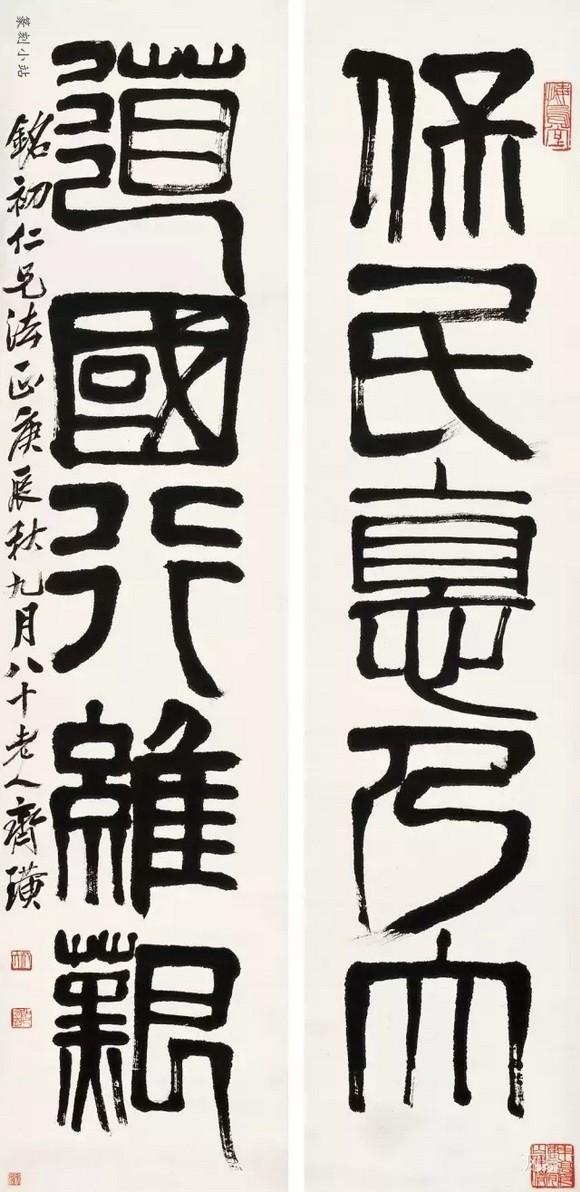 保民悳乃大
道國行維艱
銘初仁兄法正庚辰秋九月八十老人齊璜
篆刻小站